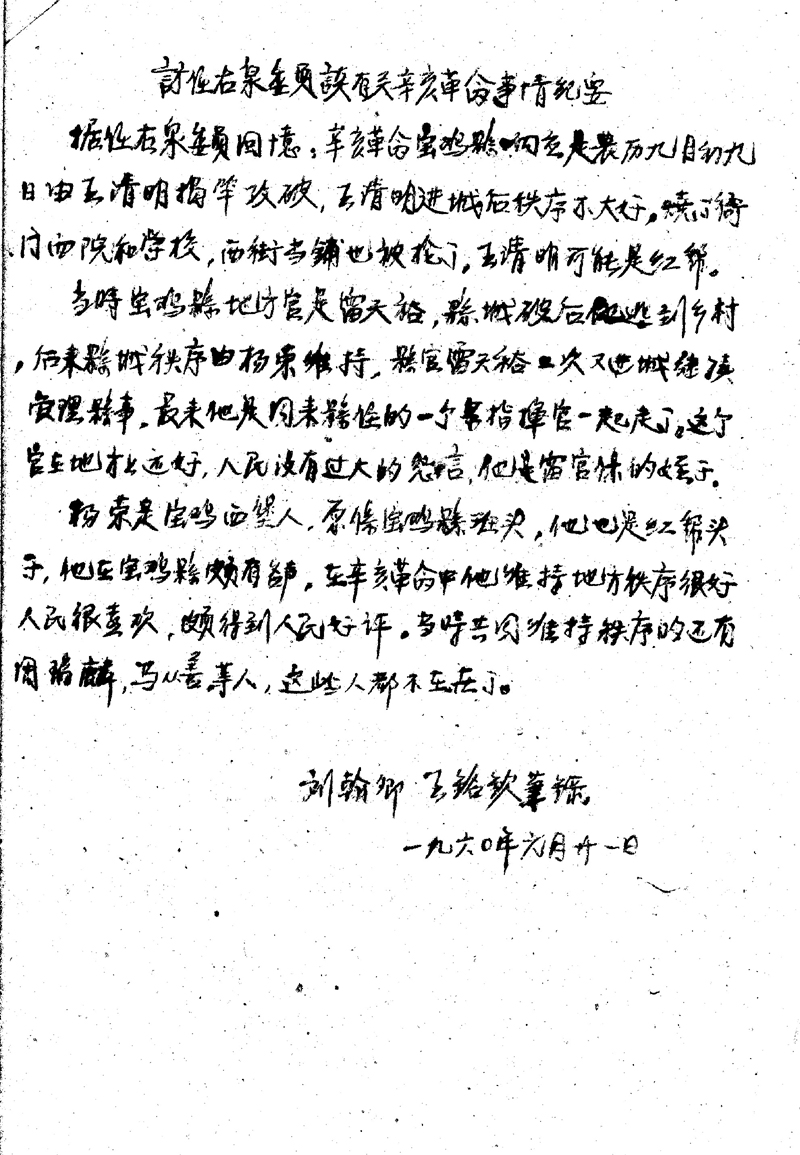 訪任右泉委員談有关辛亥革命事情紀要
据任右泉委員回憶：辛亥革命宝鸡縣响应是農历九月初九
日由王清明揭竿攻破，王清明进城后秩序不大好。燒了衙
门西院和学校，西街当鋪也被抢了，王清明可能是红帮。
当時宝鸡縣地方官是雷天裕，縣城破后他逃到乡村
，后来縣城秩序由杨荣維持，縣官雷天裕二次又进城継續
管理縣事。最末他是同来縣任的一个指揮官一起走了。这个
官在地方上还好，人民没有过大的怨言，他是雷官保的姪子。
杨荣是宝鸡西堡人，原係宝鸡縣班头，他也是红帮头
子，他在宝鸡縣頗有声，在辛亥革命中他维持地方秩序很好
人民很喜欢，頗得到人民好评。当時共同维持秩序的还有
周瑞麟，马从善等人，这些人都不在世了。
刘翰卿 王銘欽筆錄。
一九六〇年六月廿一日